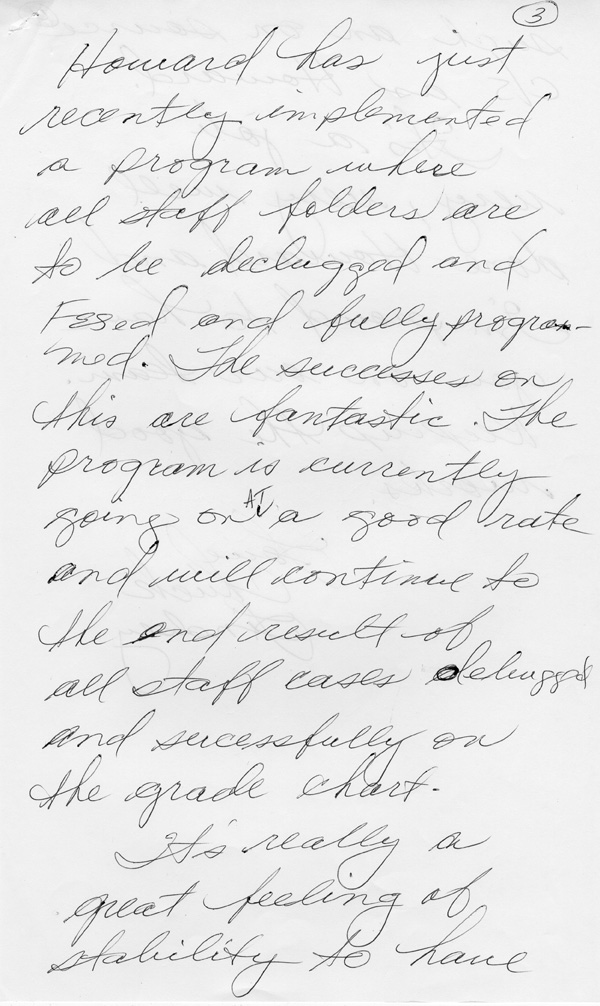 3
Howard has just
recently implemented
a program where
all staff folders are
to be declugged and
Fesed and fully program-
med. The successes on
this are fantastic. The
program is currently
going on AT a good rate
and will continue to
the end result of
all staff cases debugged
and sucessfully on
the grade chart.
It's really a
great feeling of
stability to have